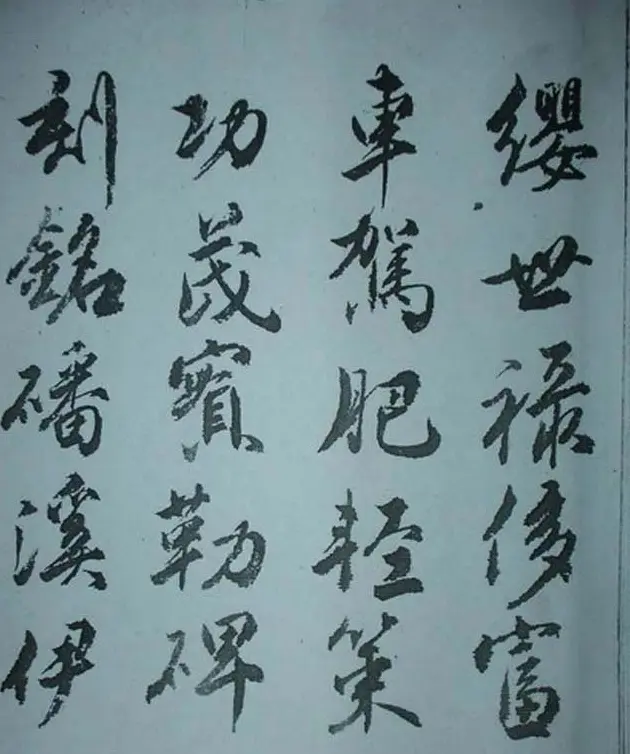 纓世祿侈富
車駕肥輕策
功茂實勒碑
刻銘磻溪伊